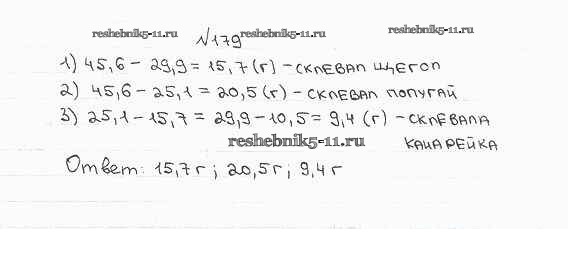 reshebnik5-11.ru №179 reshebnik5-11.ru reshebnik5-11.ru
1) 45,6 - 29,9 = 15,7 (г) - склевал щегол
2) 45,6 - 25,1 = 20,5 (г) - склевал попугай
3) 25,1 - 15,7 = 29,9 - 10,5 = 9,4 (г) - склевала
reshebnik5-11.ru канарейка
Ответ: 15,7 г ; 20,5 г ; 9,4 г